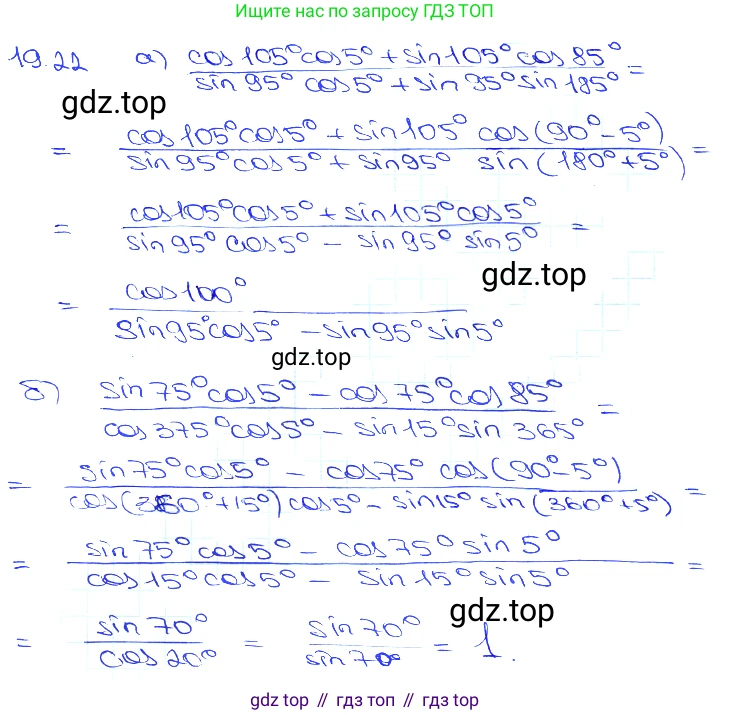 Ищите нас по запросу ГДЗ ТОП
19.22 а) (cos 105° cos 5° + sin 105° cos 85°) / (sin 95° cos 5° + sin 95° sin 185°) =
gdz.top
= (cos 105° cos 5° + sin 105° cos(90° - 5°)) / (sin 95° cos 5° + sin 95° sin(180° + 5°)) =
= (cos 105° cos 5° + sin 105° cos 5°) / (sin 95° cos 5° - sin 95° sin 5°) =
gdz.top
= cos 100° / (sin 95° cos 5° - sin 95° sin 5°)
gdz.top
б) (sin 75° cos 5° - cos 75° cos 85°) / (cos 375° cos 5° - sin 15° sin 365°) =
= (sin 75° cos 5° - cos 75° cos(90° - 5°)) / (cos(360° + 15°) cos 5° - sin 15° sin(360° + 5°)) =
= (sin 75° cos 5° - cos 75° sin 5°) / (cos 15° cos 5° - sin 15° sin 5°) =
gdz.top
= sin 70° / cos 20° = sin 70° / sin 70° = 1.
gdz top // гдз топ // gdz.top